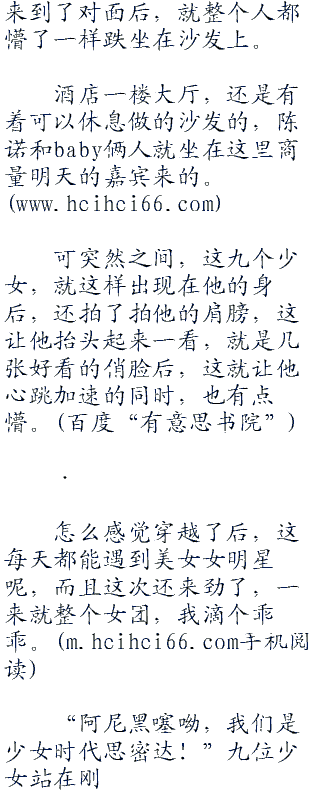 来到了对面后，就整个人都
懵了一样跌坐在沙发上。
酒店一楼大厅，还是有
着可以休息做的沙发的，陈
诺和baby俩人就坐在这里商
量明天的嘉宾来的。
(www.hcihci66.com)
可突然之间，这九个少
女，就这样出现在他的身
后，还拍了拍他的肩膀，这
让他抬头起来一看，就是几
张好看的俏脸后，这就让他
心跳加速的同时，也有点
懵。(百度“有意思书院”)
.
怎么感觉穿越了后，这
每天都能遇到美女女明星
呢，而且这次还来劲了，一
来就整个女团，我滴个乖
乖。(m.hcihci66.com手机阅
读)
“阿尼黑噻呦，我们是
少女时代思密达！”九位少
女站在刚